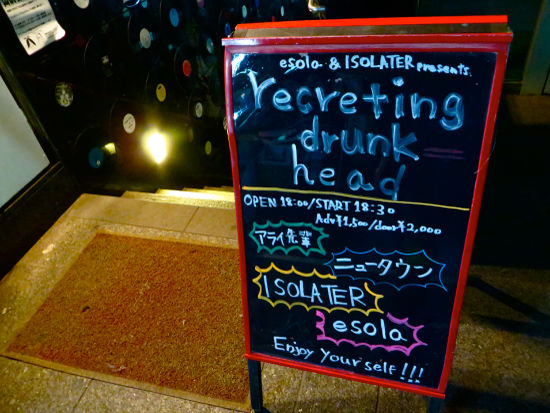 esola & ISOLATER presents
recreting
drunk
head
OPEN 18:00/START 18:30
Adv¥1,500/door¥2,000
アライ先輩
ニュータウン
ISOLATER
esola
Enjoy Yourself!!!